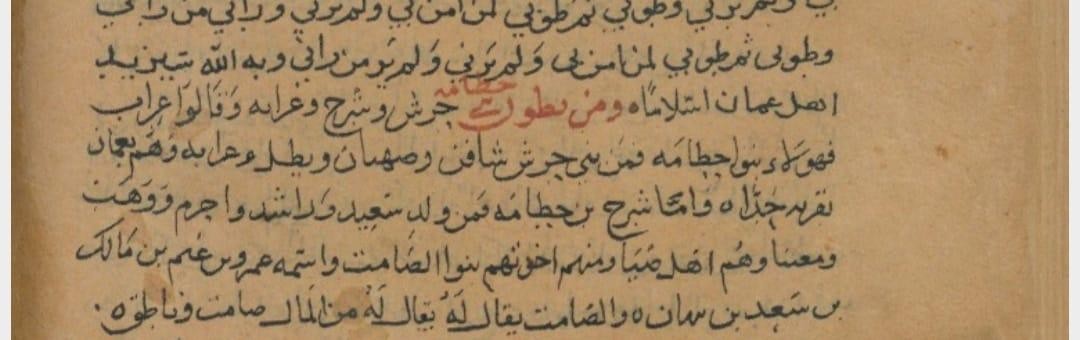 وطوبى ثم طوبى لمن امن بي ولم يرني ولم ير من راني
وطوبى ثم طوبى لمن امن بى ولم يرنى ولم ير من رانى وبه الله سيزيد
اهل عمان اسلاماه ومن بطون بني حطامه جرش وشرح وغرابه وقالوا عراب
فهولاء بنوا حطامه فمن بني جرش شافن وصهبان وبطل وعرابه وهم بعمان
نفر جداه واما شرح بن حطامه فمن ولد سعيد وراشد واجرم ووهب
ومعنا وهم اهل ضيا ومنهم اخوتهم بنوا الصامت واسمه عمرو بن غنم بن مالك
بن سعد بن نبهان ه والصامت يقال له يقال له من المال صامت وناطق ه